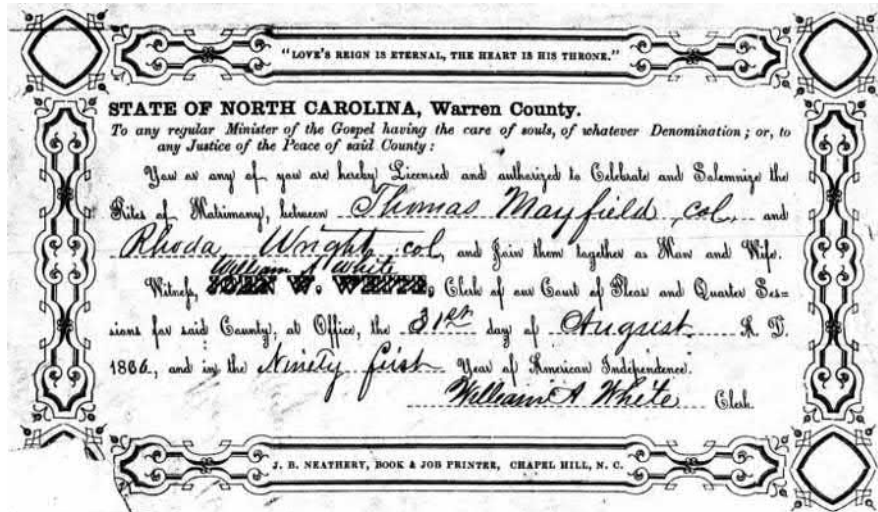 "LOVE'S REIGN IS ETERNAL, THE HEART IS HIS THRONE."
STATE OF NORTH CAROLINA, Warren County.
To any regular Minister of the Gospel having the care of souls, of whatever Denomination; or, to
any Justice of the Peace of said County:
You or any of you are hereby Licensed and authorized to Celebrate and Solemnize the
Rites of Matrimony, between Thomas Mayfield col, and
Rhoda Wright col, and Join them together as Man and Wife.
William A White
Witness, JOHN W. WHITE, Clerk of our Court of Pleas and Quarter Ses=
sions for said County, at Office, the 31st day of August A. D.
1866, and in the Ninety first Year of American Independence.
William A White Clerk.
J. B. NEATHERY, BOOK & JOB PRINTER, CHAPEL HILL, N. C.